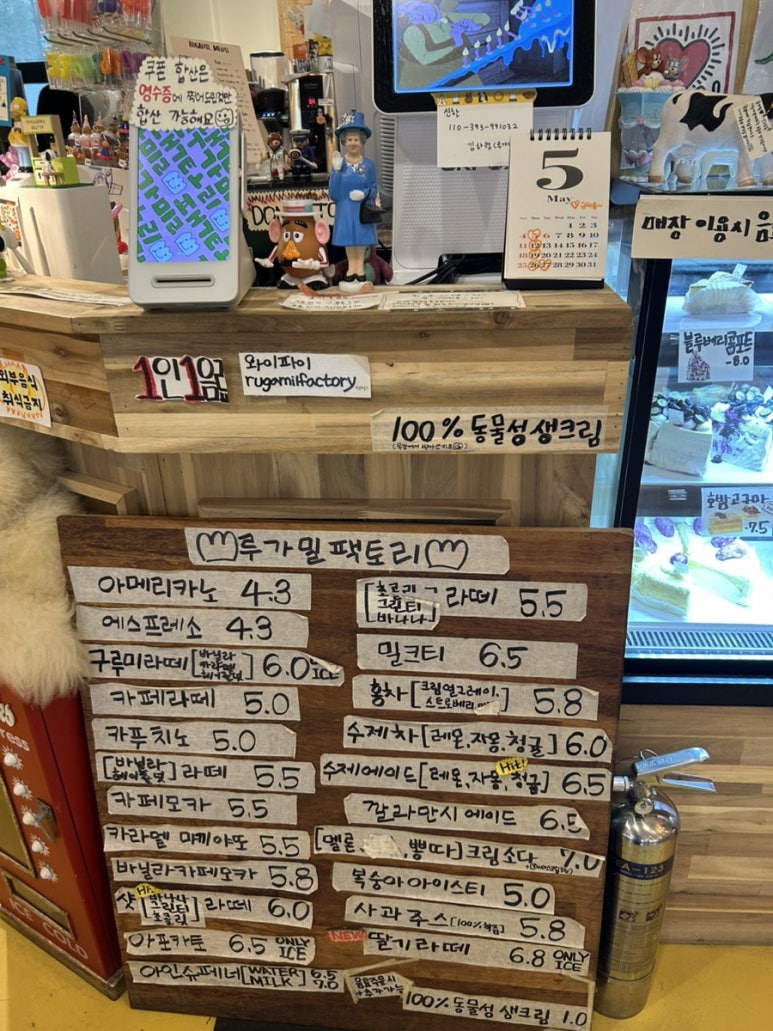 쿠폰 합산은
영수증에 찍어드린것만
합산 가능해요
신한
110-393-991032
5
May
1 2 3
4 5 6 7 8 9 10
11 12 13 14 15 16 17
18 19 20 21 22 23 24
25 26 27 28 29 30 31
매장 이용시 음
블루베리콤포트
-8.0
호박고구마
-7.5
외부음식
취식금지
1인1음
와이파이
rugamilfactory
100% 동물성 생크림
루가밀팩토리
아메리카노 4.3
에스프레소 4.3
구루미라떼 [바닐라 카라멜 헤이즐넛] 6.0 ICE
카페라떼 5.0
카푸치노 5.0
[바닐라 헤이즐넛] 라떼 5.5
카페모카 5.5
카라멜 마끼야또 5.5
바닐라카페모카 5.8
Hit!
샷 [바나나 그린티 초콜릿] 라떼 6.0
아포카토 6.5 ONLY ICE
아인슈페너 [WATER 6.5
MILK] 7.0
[초코 그린티 바나나] 라떼 5.5
밀크티 6.5
홍차 [크림얼그레이, 스트로베리] 5.8
수제차 [레몬, 자몽, 청귤] 6.0
Hit!
수제에이드 [레몬, 자몽, 청귤] 6.5
깔라만시 에이드 6.5
[멜론, 뽕따] 크림소다 7.0
복숭아 아이스티 5.0
사과주스 [100% 착즙] 5.8
NEW 딸기라떼 6.8 ONLY ICE
음료주문시
+추가가능
100% 동물성 생크림 1.0
A-123
ICE COLD